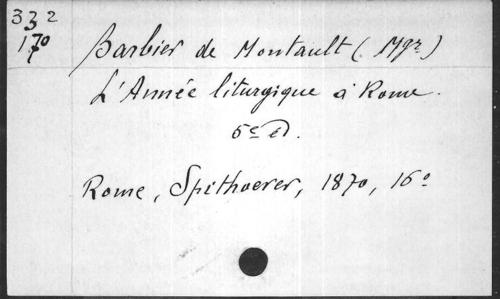 332
3
170
7
Barbier de Montault (Mgr)
L'Année liturgique à Rome.
5e éd.
Rome, Spithoever, 1870, 16°